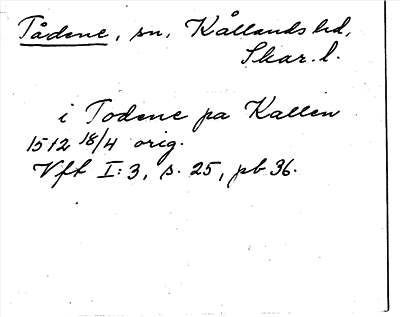 Tådene, sn, Kållands hd,
Skar. l.
i Todene pa Kallen
1512 18/4 orig.
Vft I: 3, s. 25, pb 36.